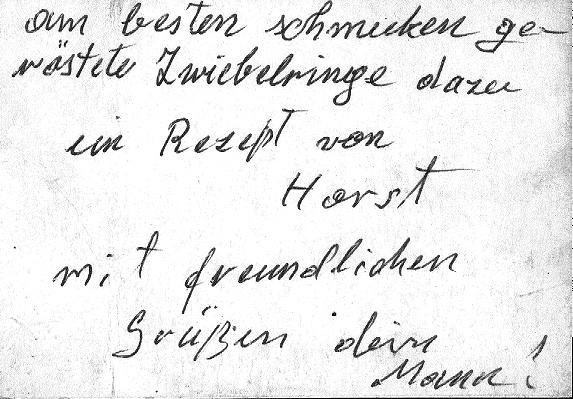 am besten schmecken ge-
röstete Zwiebelringe dazu
ein Rezept von
Horst
mit freundlichen
Grüßen dein
Mann!